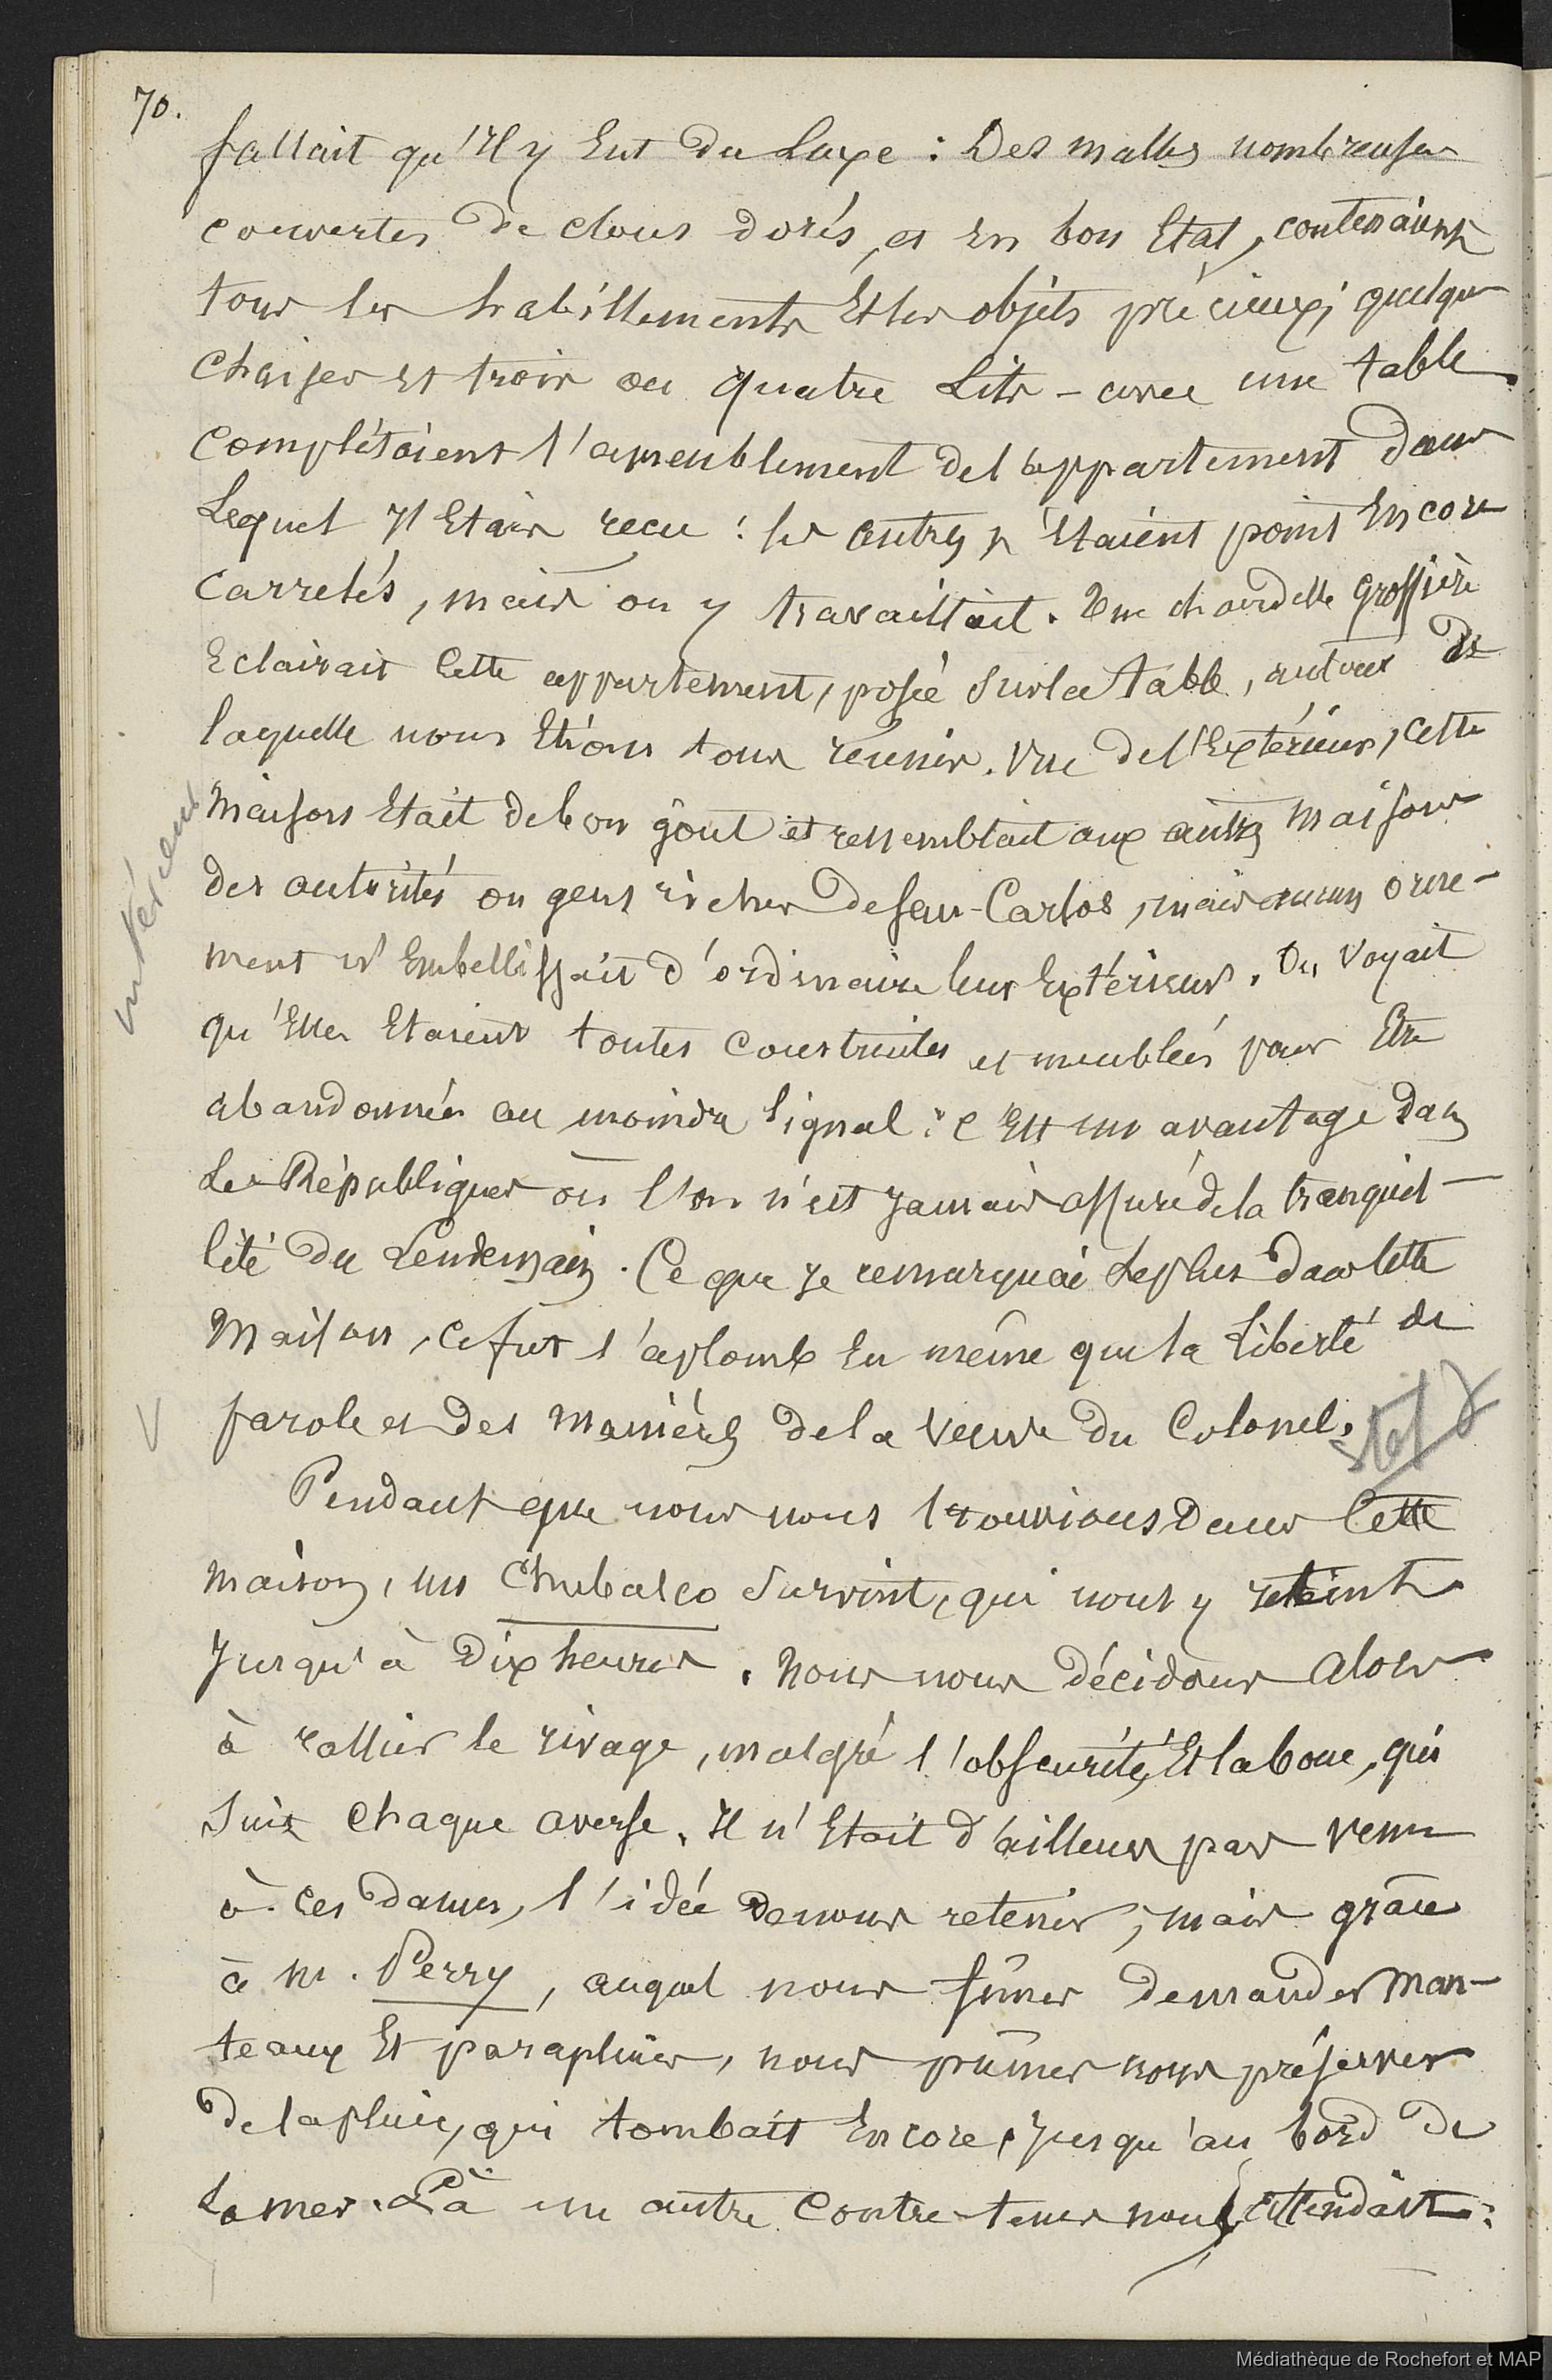 70.
fallait qu'il y eut du luxe : Des malles nombreuses
couvertes de clous dorés, et en bon Etat, contenaient
tous les habillements Et les objets précieux ; quelques
chaises et trois ou quatre Lits - avec une table
complétaient l'ameublement de l'appartement dans
Lequel Il Etais reçu : les autres n'étaient point Encore
carrelés, mais on y travaillait. Une chandelle grossière
Eclairait Cette appartement, posée sur la table, autour de
laquelle nous Etions tous réunis. Vue de l'Extérieur, cette
Maison Etait de bon goût et ressemblait aux autres Maisons
intérieur
des autorités ou gens riches de San-Carlos, mais aucun orne-
ment n'Embellissait d'ordinaire leur Extérieur. On Voyait
qu'Elles Etaient toutes construites et meublées pour Etre
abandonnées au moindre signal : c'Est un avantage dans
Les Républiques où l'on n'est Jamais assuré de la tranquil-
lité du Lendemain. Ce que Je remarquai Le plus dans Cette
Maison, ce fut l'aplomb En même que la liberté de
V parole et des Manières de la Veuve du Colonel.
Pendant que nous nous trouvions dans Cette
maison, un Chubasco survint, qui nous y retint
Jusqu'à Dix heures. Nous nous décidons alors
à rallier le rivage, malgré l'obscurité, Et la boue, qui
suit chaque averse. Il n'Etait d'ailleurs pas venu
à ces Dames, l'idée de nous retenir ; mais grâce
à M. Perry, auquel nous fûmes demander Man-
teaux Et parapluies, nous pûmes nous préserver
de la pluie, qui tombait Encore, Jusqu'au bord de
La mer. Là un autre Contre-tems nous attendait :
Médiathèque de Rochefort et MAP